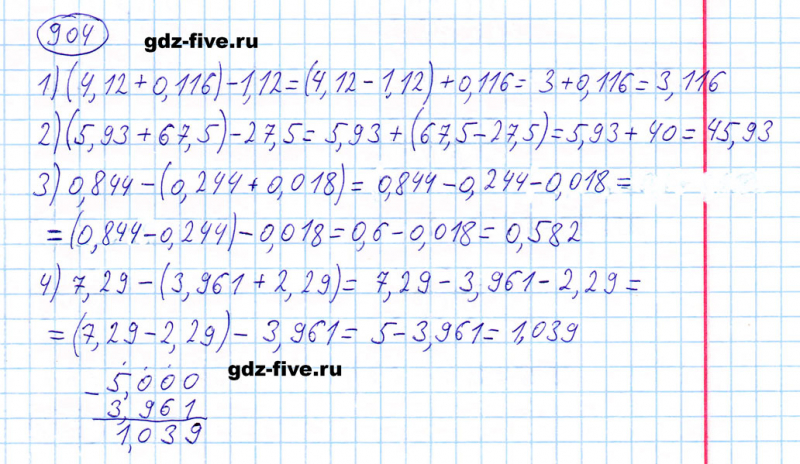 904
gdz-five.ru
1) (4,12 + 0,116) - 1,12 = (4,12 - 1,12) + 0,116 = 3 + 0,116 = 3,116
2) (5,93 + 67,5) - 27,5 = 5,93 + (67,5 - 27,5) = 5,93 + 40 = 45,93
3) 0,844 - (0,244 + 0,018) = 0,844 - 0,244 - 0,018 =
= (0,844 - 0,244) - 0,018 = 0,6 - 0,018 = 0,582
4) 7,29 - (3,961 + 2,29) = 7,29 - 3,961 - 2,29 =
= (7,29 - 2,29) - 3,961 = 5 - 3,961 = 1,039
gdz-five.ru
- 5,000
3,961
1,039